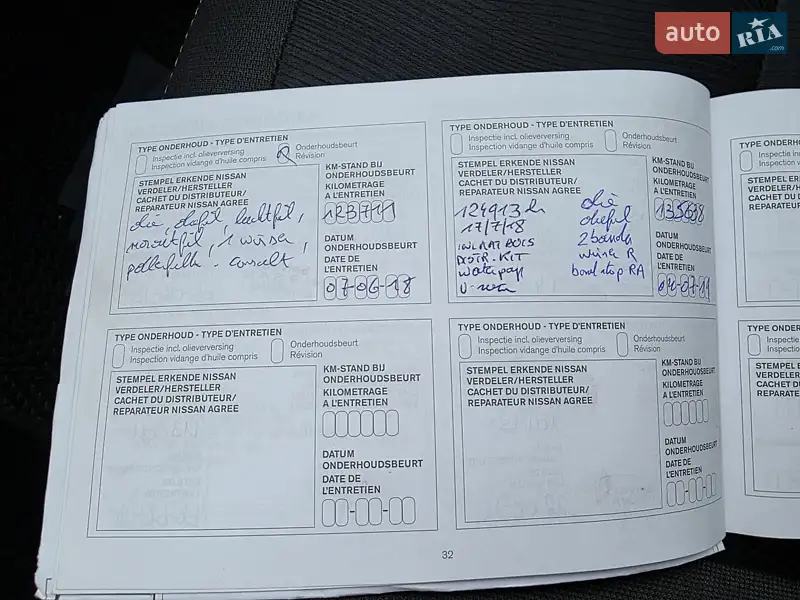 auto RIA .com
TYPE ONDERHOUD - TYPE D'ENTRETIEN
Inspectie incl. olieverversing
Inspection vidange d'huile compris
Onderhoudsbeurt
Révision
STEMPEL ERKENDE NISSAN
VERDELER/HERSTELLER
CACHET DU DISTRIBUTEUR/
REPARATEUR NISSAN AGREE
olie, oliefil, luchtfil,
1 wisser
pollenfilt. consult
KM-STAND BIJ
ONDERHOUDSBEURT
KILOMETRAGE
A L'ENTRETIEN
123711
DATUM
ONDERHOUDSBEURT
DATE DE
L'ENTRETIEN
07-06-18
TYPE ONDERHOUD - TYPE D'ENTRETIEN
Inspectie incl. olieverversing
Inspection vidange d'huile compris
Onderhoudsbeurt
Révision
STEMPEL ERKENDE NISSAN
VERDELER/HERSTELLER
CACHET DU DISTRIBUTEUR/
REPARATEUR NISSAN AGREE
124913 k
17/7/18
DISTR. KIT
waterpap
olie
oliefil
2 banden
wisser R
KM-STAND BIJ
ONDERHOUDSBEURT
KILOMETRAGE
A L'ENTRETIEN
DATUM
ONDERHOUDSBEURT
DATE DE
L'ENTRETIEN
04-07-19
TYPE ONDERHOUD
Inspectie
Inspection
STEMPEL ER
VERDELER/
CACHET DU
REPARATEU
TYPE ONDERHOUD - TYPE D'ENTRETIEN
Inspectie incl. olieverversing
Inspection vidange d'huile compris
Onderhoudsbeurt
Révision
STEMPEL ERKENDE NISSAN
VERDELER/HERSTELLER
CACHET DU DISTRIBUTEUR/
REPARATEUR NISSAN AGREE
KM-STAND BIJ
ONDERHOUDSBEURT
KILOMETRAGE
A L'ENTRETIEN
DATUM
ONDERHOUDSBEURT
DATE DE
L'ENTRETIEN
TYPE ONDERHOUD - TYPE D'ENTRETIEN
Inspectie incl. olieverversing
Inspection vidange d'huile compris
Onderhoudsbeurt
Révision
STEMPEL ERKENDE NISSAN
VERDELER/HERSTELLER
CACHET DU DISTRIBUTEUR/
REPARATEUR NISSAN AGREE
KM-STAND BIJ
ONDERHOUDSBEURT
KILOMETRAGE
A L'ENTRETIEN
DATUM
ONDERHOUDSBEURT
DATE DE
L'ENTRETIEN
TYPE ONDERHO
Inspectie
Inspection
STEMPEL ER
VERDELER/
CACHET DU
REPARATEU
32